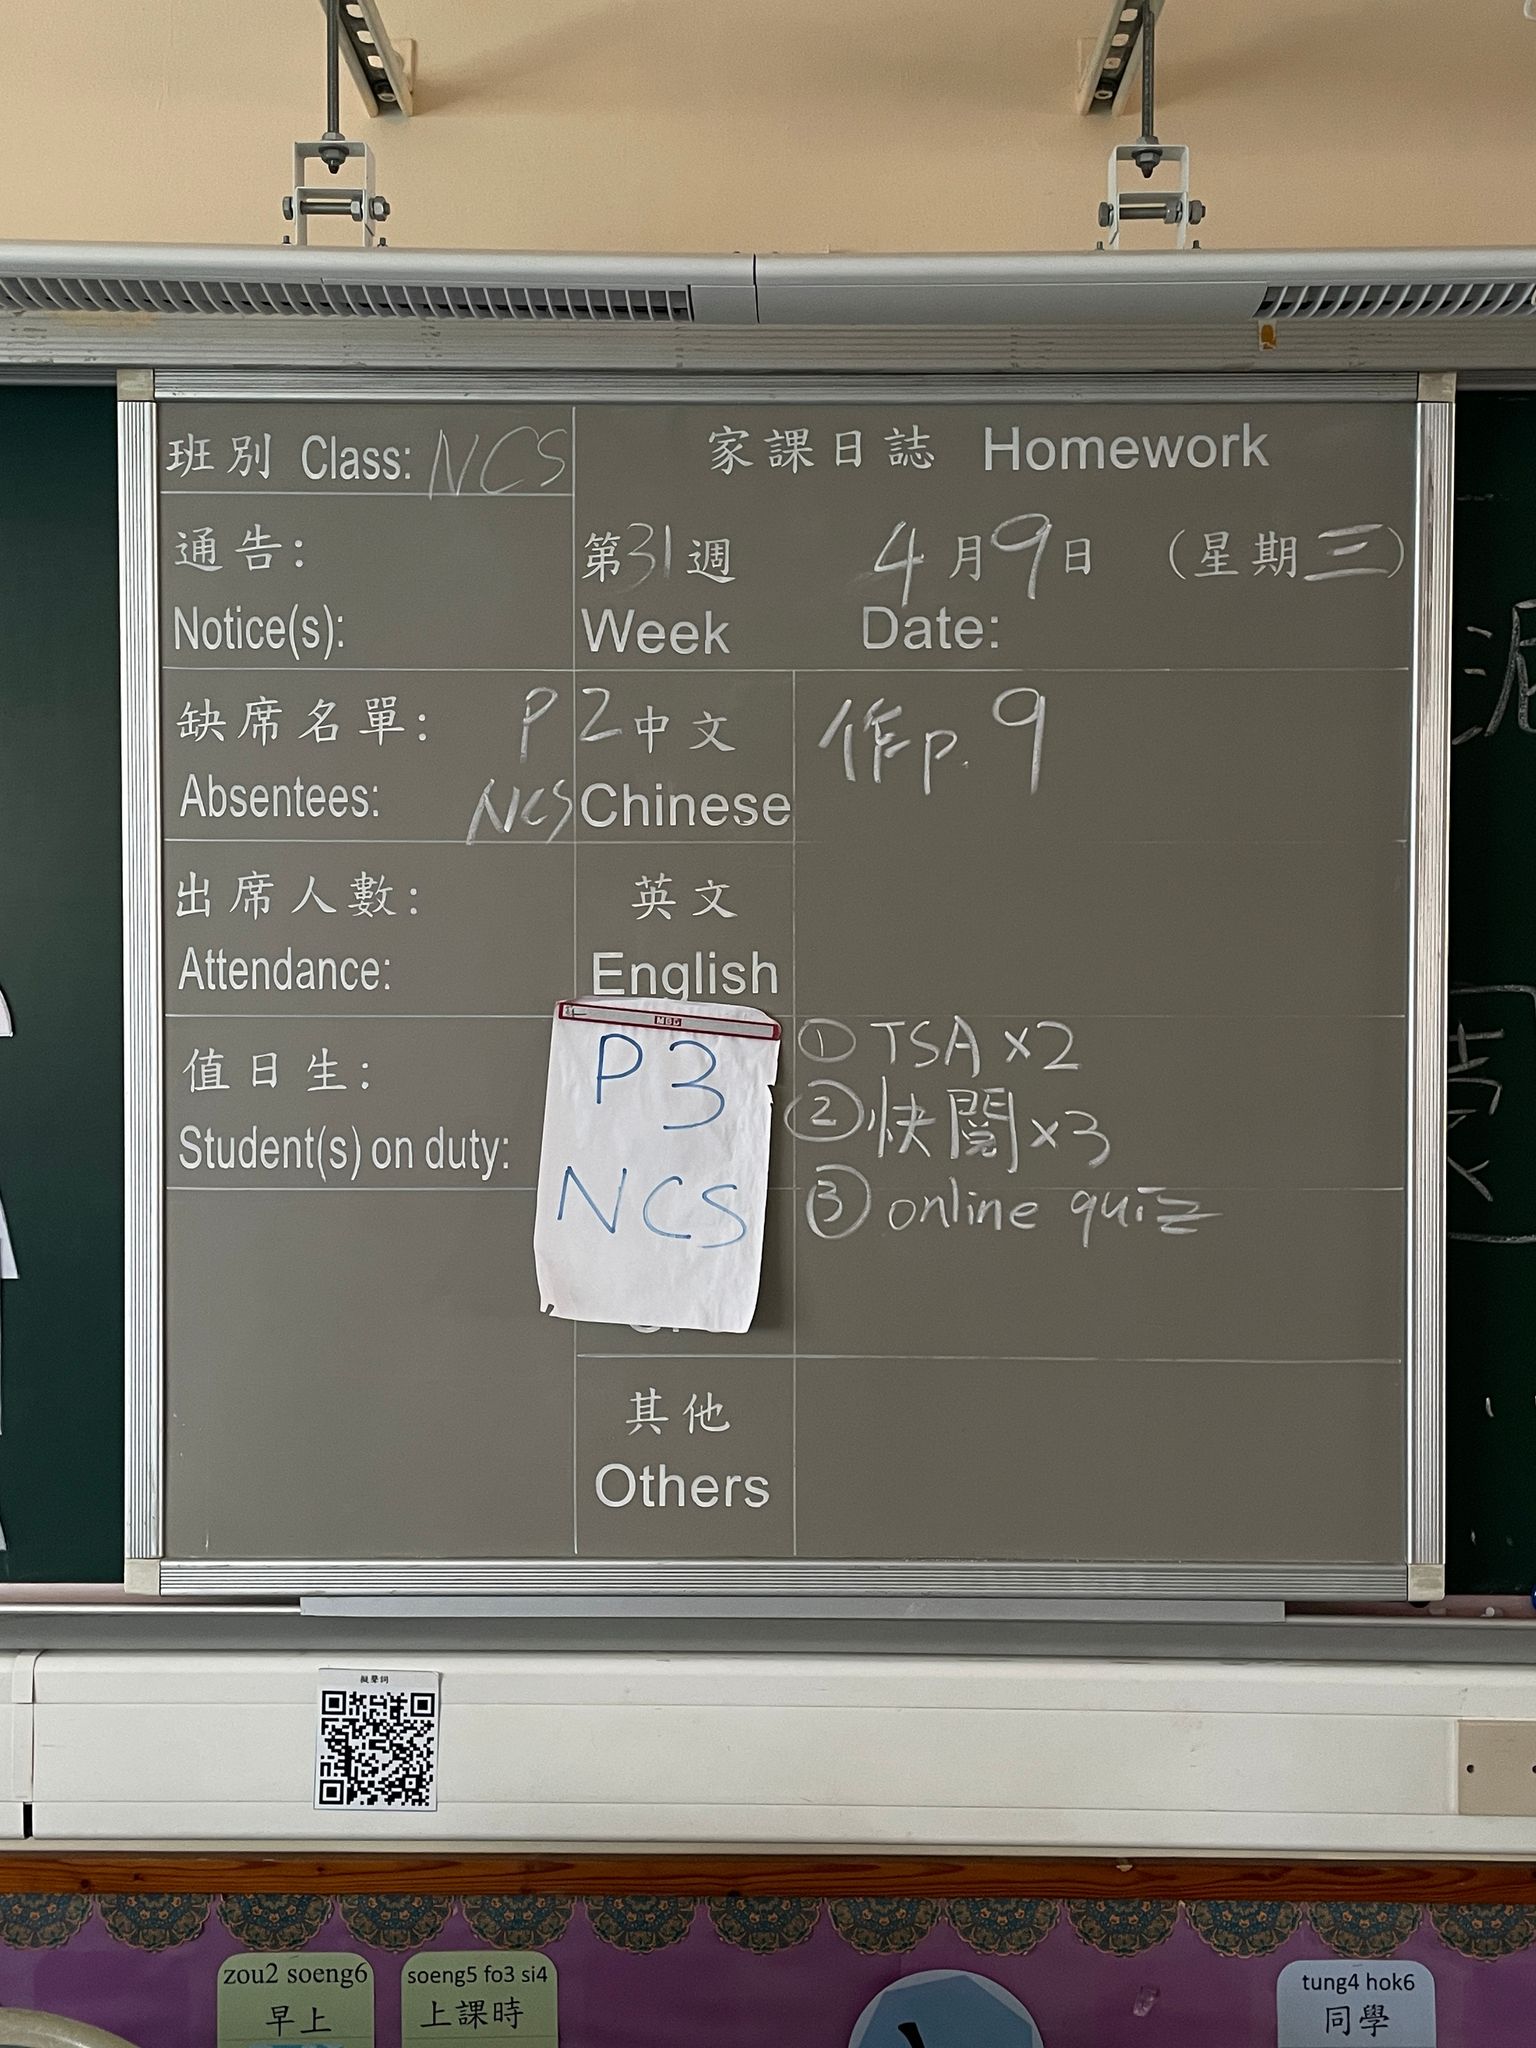 班別 Class: NCS
家課日誌 Homework
通告:
Notice(s):
第31週 4月9日 (星期三)
Week Date:
缺席名單:
Absentees:
P2 中文 作p.9
NCS Chinese
出席人數:
Attendance:
英文
English
值日生:
Student(s) on duty:
P3
NCS
① TSA x2
② 快閱 x3
③ online quiz
其他
Others
擬聲詞
zou2 soeng6
早上
soeng5 fo3 si4
上課時
tung4 hok6
同學